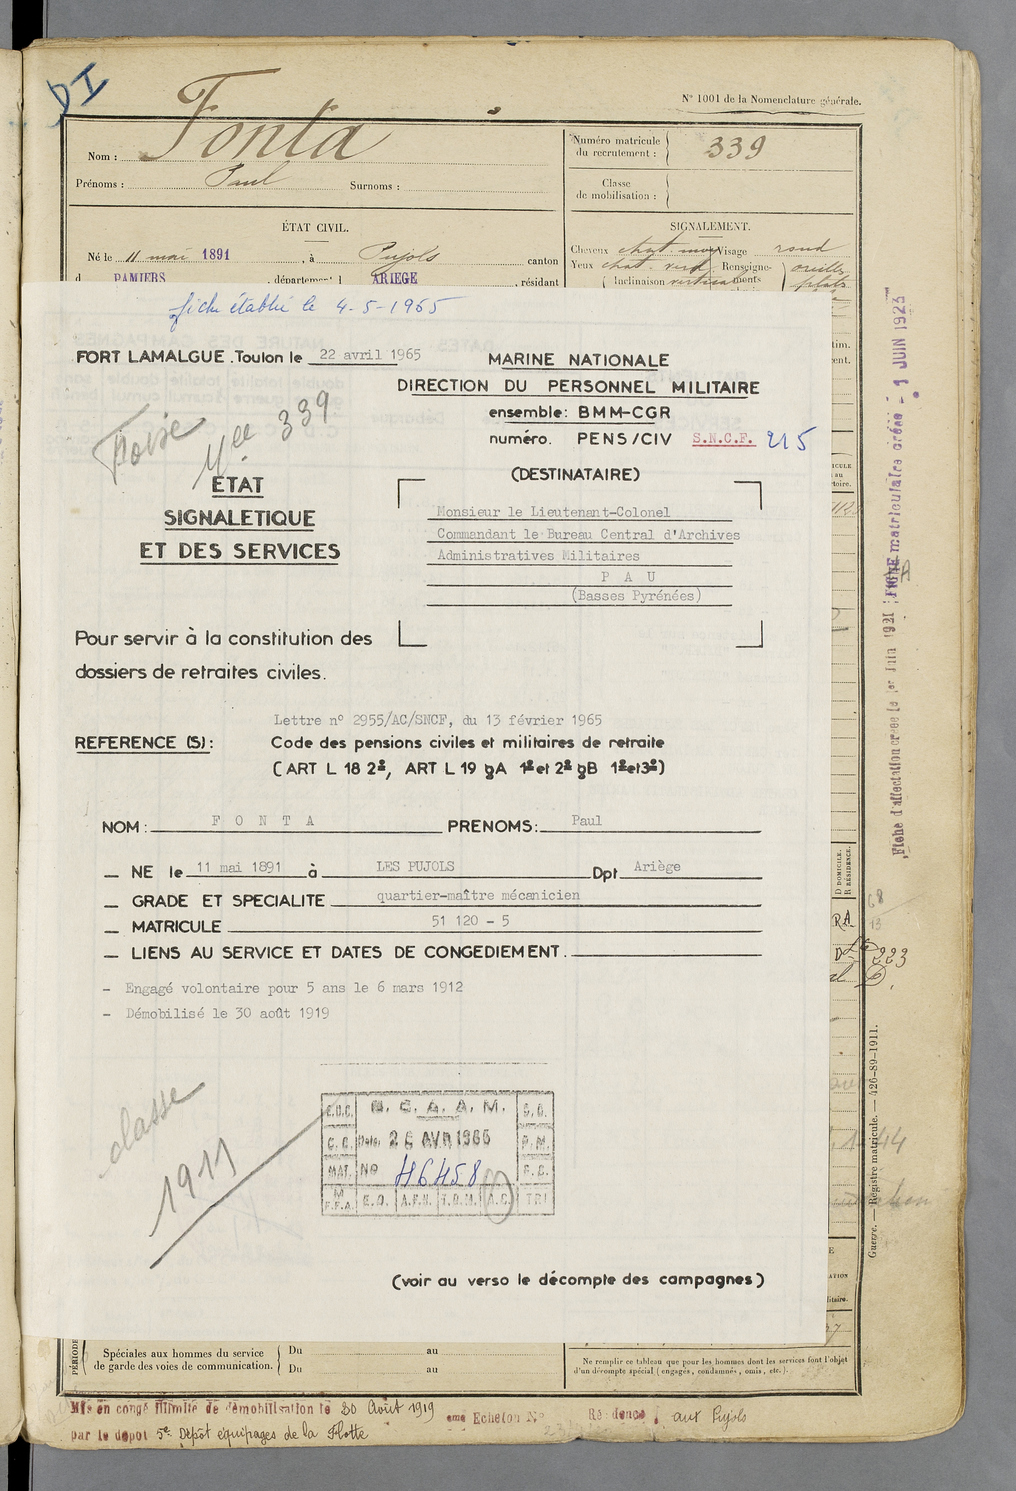 DI
N° 1001 de la Nomenclature générale.
Nom : Fonta
Prénoms : Paul Surnoms :
Numéro matricule du recrutement : 339
Classe de mobilisation :
ÉTAT CIVIL.
Né le 11 mai 1891, à Pujols canton
d PAMIERS, département d ARIEGE, résidant
SIGNALEMENT.
Cheveux chat. moy Visage rond
Yeux chat. verd. Renseigne-
Inclinaison verticale ments
fiche établie le 4-5-1965
FORT LAMALGUE. Toulon le 22 avril 1965
MARINE NATIONALE
DIRECTION DU PERSONNEL MILITAIRE
ensemble: BMM-CGR
numéro. PENS/CIV S.N.C.F. 215
Foix
Mle 339
ÉTAT
SIGNALETIQUE
ET DES SERVICES
(DESTINATAIRE)
Monsieur le Lieutenant-Colonel
Commandant le Bureau Central d'Archives
Administratives Militaires
P A U
(Basses Pyrénées)
Pour servir à la constitution des
dossiers de retraites civiles.
Lettre n° 2955/AC/SNCF, du 13 février 1965
REFERENCE (S): Code des pensions civiles et militaires de retraite
(ART L 18 2º, ART L 19 §A 1º et 2º §B 1º et 3º)
NOM: F O N T A PRENOMS: Paul
— NE le 11 mai 1891 à LES PUJOLS Dpt Ariège
— GRADE ET SPECIALITE quartier-maître mécanicien
— MATRICULE 51 120 - 5
— LIENS AU SERVICE ET DATES DE CONGEDIEMENT.
- Engagé volontaire pour 5 ans le 6 mars 1912
- Démobilisé le 30 août 1919
classe
1911
E.U.C. B. C. A. A. M. S.O.
C. C. Date: 26 AVR 1965 P.M.
MAT. No 46458 F.C.
M F.F.A. E.O. A.F.N. T.O.M. A.C. TRI
(voir au verso le décompte des campagnes)
Fiche d'affectation créée le 1er Juin 1921
FICHE matriculaire créée - 1 JUIN 1923
D DOMICILE.
R RÉSIDENCE.
RA
223
Guerre. — Registre matricule. — 426-89-1911.
PÉRIODE
Spéciales aux hommes du service
de garde des voies de communication.
Du au
Du au
Ne remplir ce tableau que pour les hommes dont les services font l'objet
d'un décompte spécial (engagés, condamnés, omis, etc.).
Mis en congé illimité de démobilisation le 30 Août 1919 eme Echelon N° Résidence aux Pujols
par le dépôt 5e Dépôt équipages de la Flotte